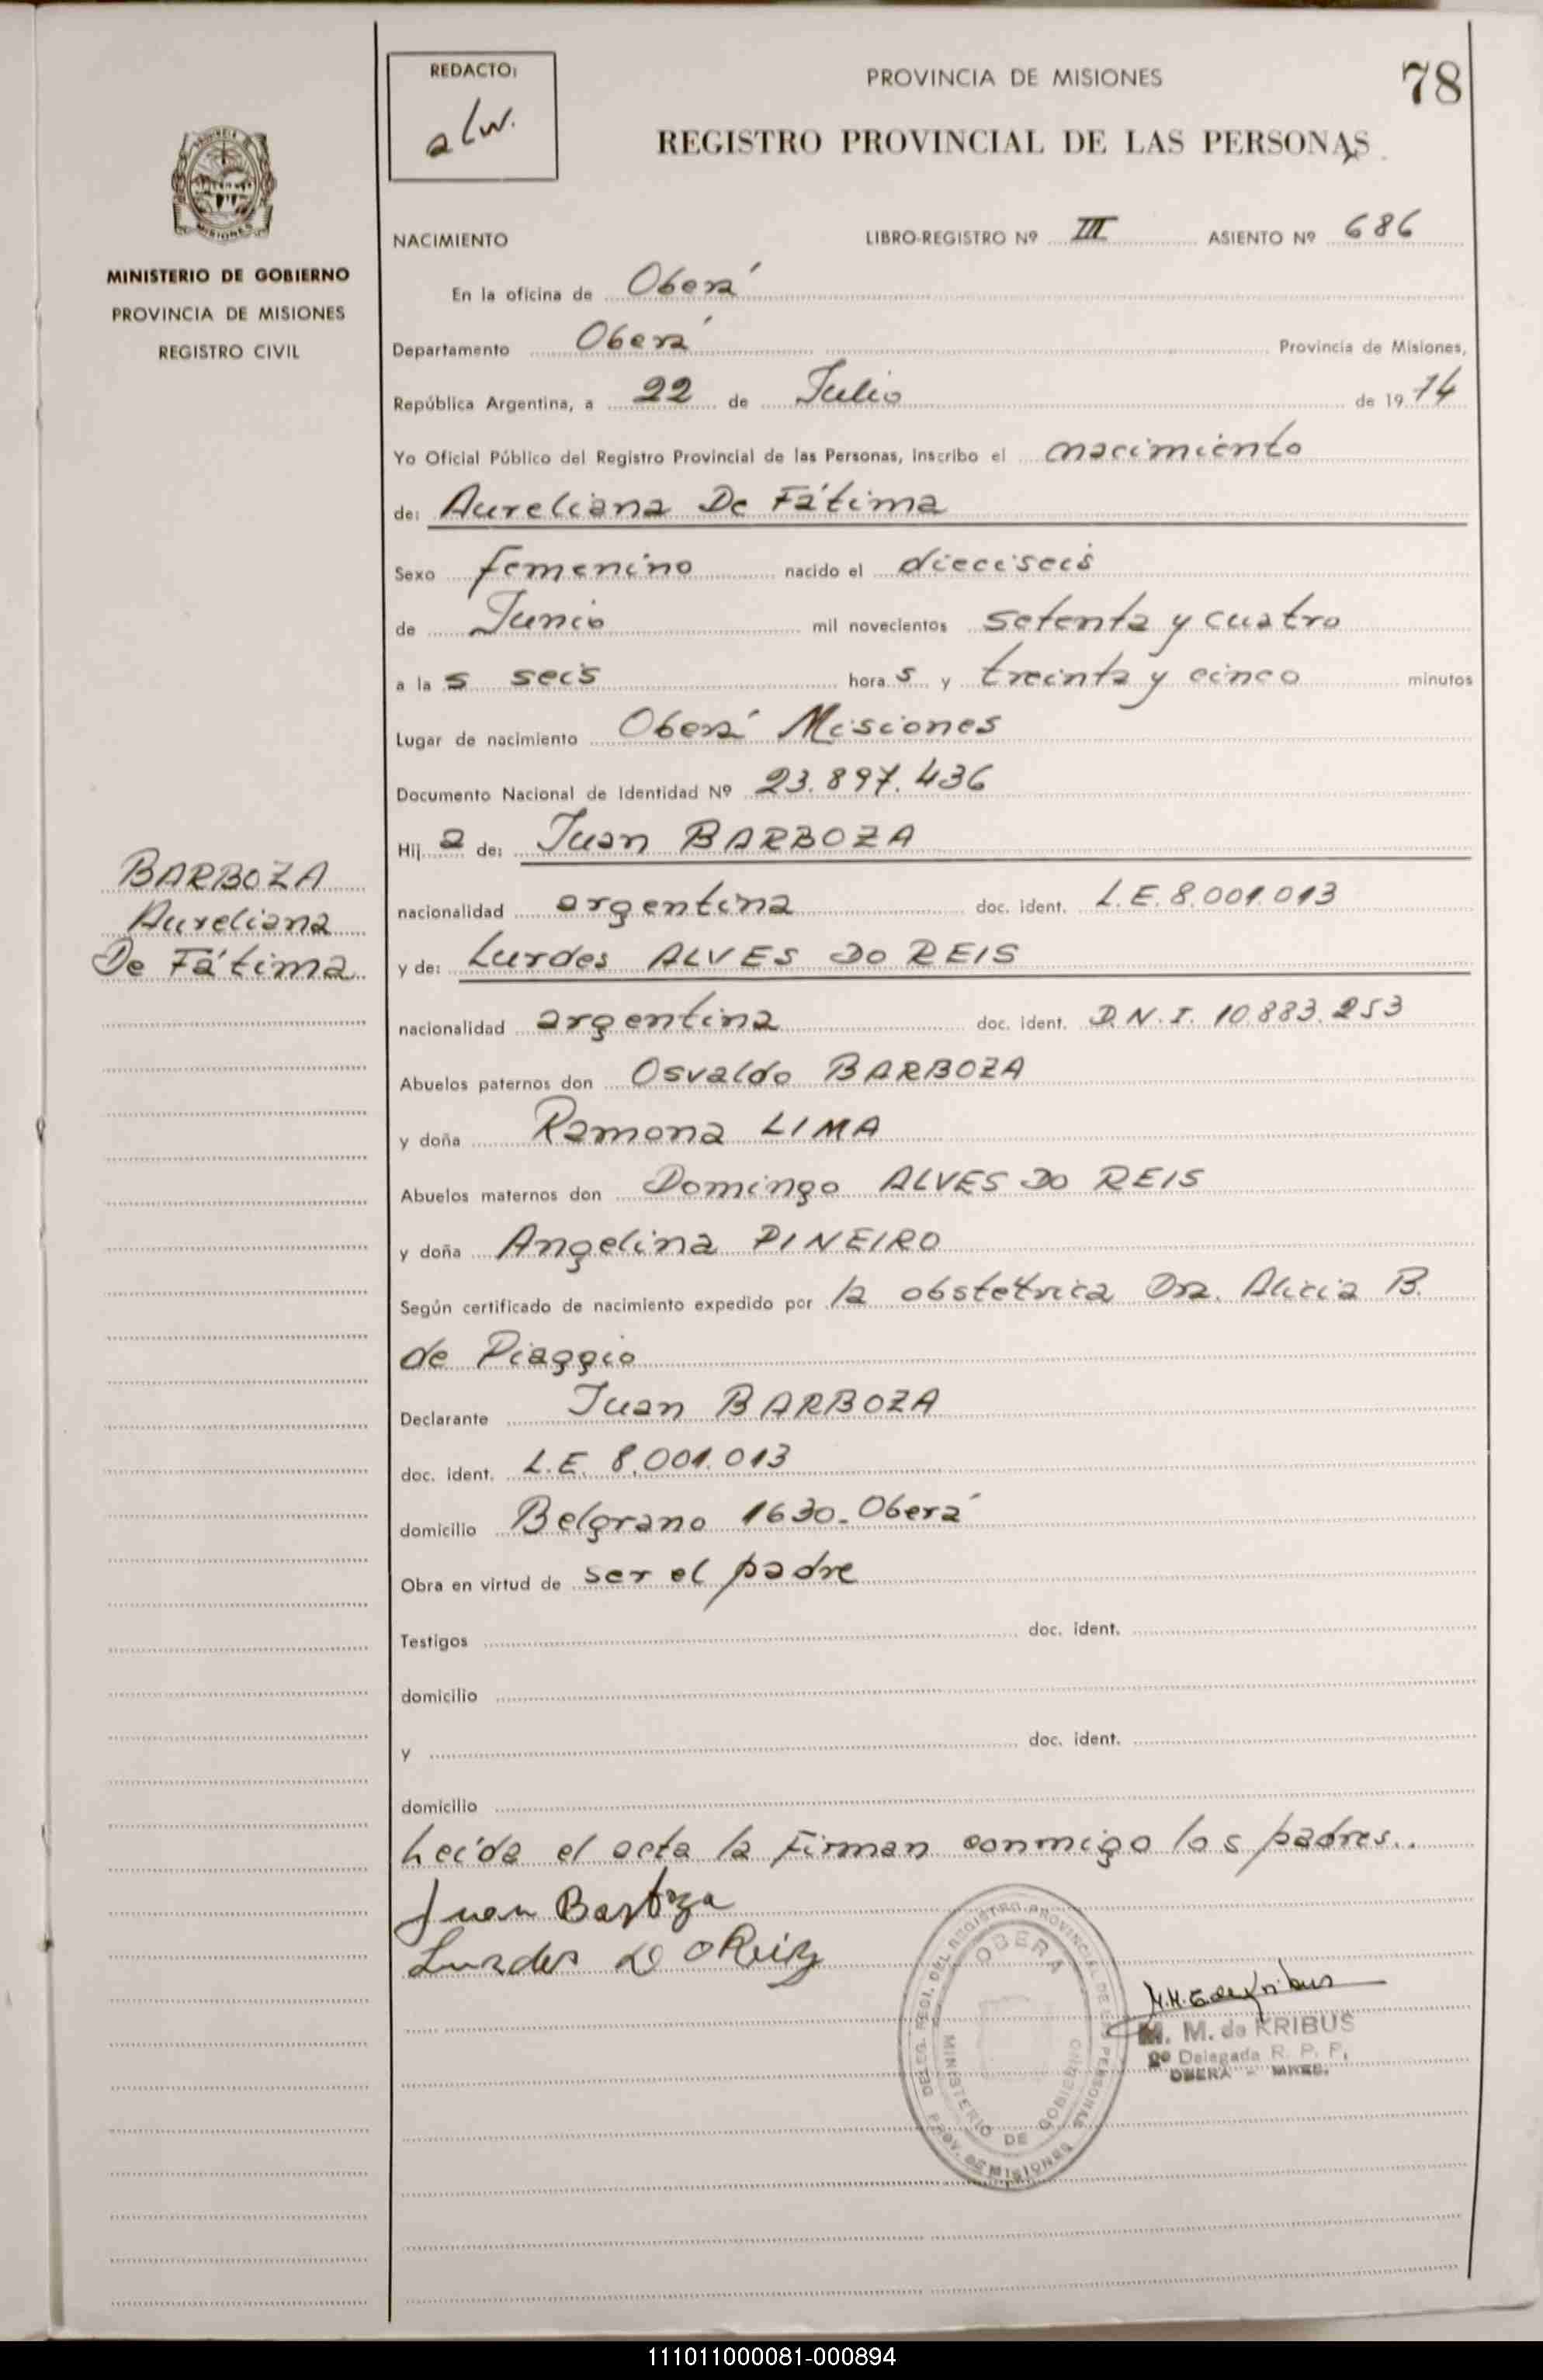 REDACTO:
alw.
PROVINCIA DE MISIONES
78
REGISTRO PROVINCIAL DE LAS PERSONAS
MISIONES
MINISTERIO DE GOBIERNO
PROVINCIA DE MISIONES
REGISTRO CIVIL
NACIMIENTO LIBRO-REGISTRO Nº III ASIENTO Nº 686
En la oficina de Oberá
Departamento Oberá Provincia de Misiones,
República Argentina, a 22 de Julio de 19 74
Yo Oficial Público del Registro Provincial de las Personas, inscribo el nacimiento
de: Aureliana De Fátima
Sexo femenino nacido el dieciseis
de Junio mil novecientos setenta y cuatro
a la s seis hora s y treinta y cinco minutos
Lugar de nacimiento Oberá Misiones
Documento Nacional de Identidad Nº 23.897.436
Hij a de: Juan BARBOZA
BARBOZA
Aureliana
De Fátima
nacionalidad argentina doc. ident. L.E. 8.001.013
y de: Lurdes ALVES DO REIS
nacionalidad argentina doc. ident. D.N.I. 10.883.253
Abuelos paternos don Osvaldo BARBOZA
y doña Ramona LIMA
Abuelos maternos don Domingo ALVES DO REIS
y doña Angelina PINEIRO
Según certificado de nacimiento expedido por la obstetrica Dra. Alicia B.
de Piaggio
Declarante Juan BARBOZA
doc. ident. L.E. 8.001.013
domicilio Belgrano 1630-Oberá
Obra en virtud de ser el padre
Testigos doc. ident.
domicilio
y doc. ident.
domicilio
Leída el acta la Firman conmigo los padres..
Juan Barboza
Lurdes
DELEG. REGI. DEL REGISTRO PROVINCIAL DE LAS PERSONAS
OBERA
MINISTERIO DE GOBIERNO
PROV. DE MISIONES
M. M. de KRIBUS
Delegada R. P. P.
OBERA - MNES.
111011000081-000894